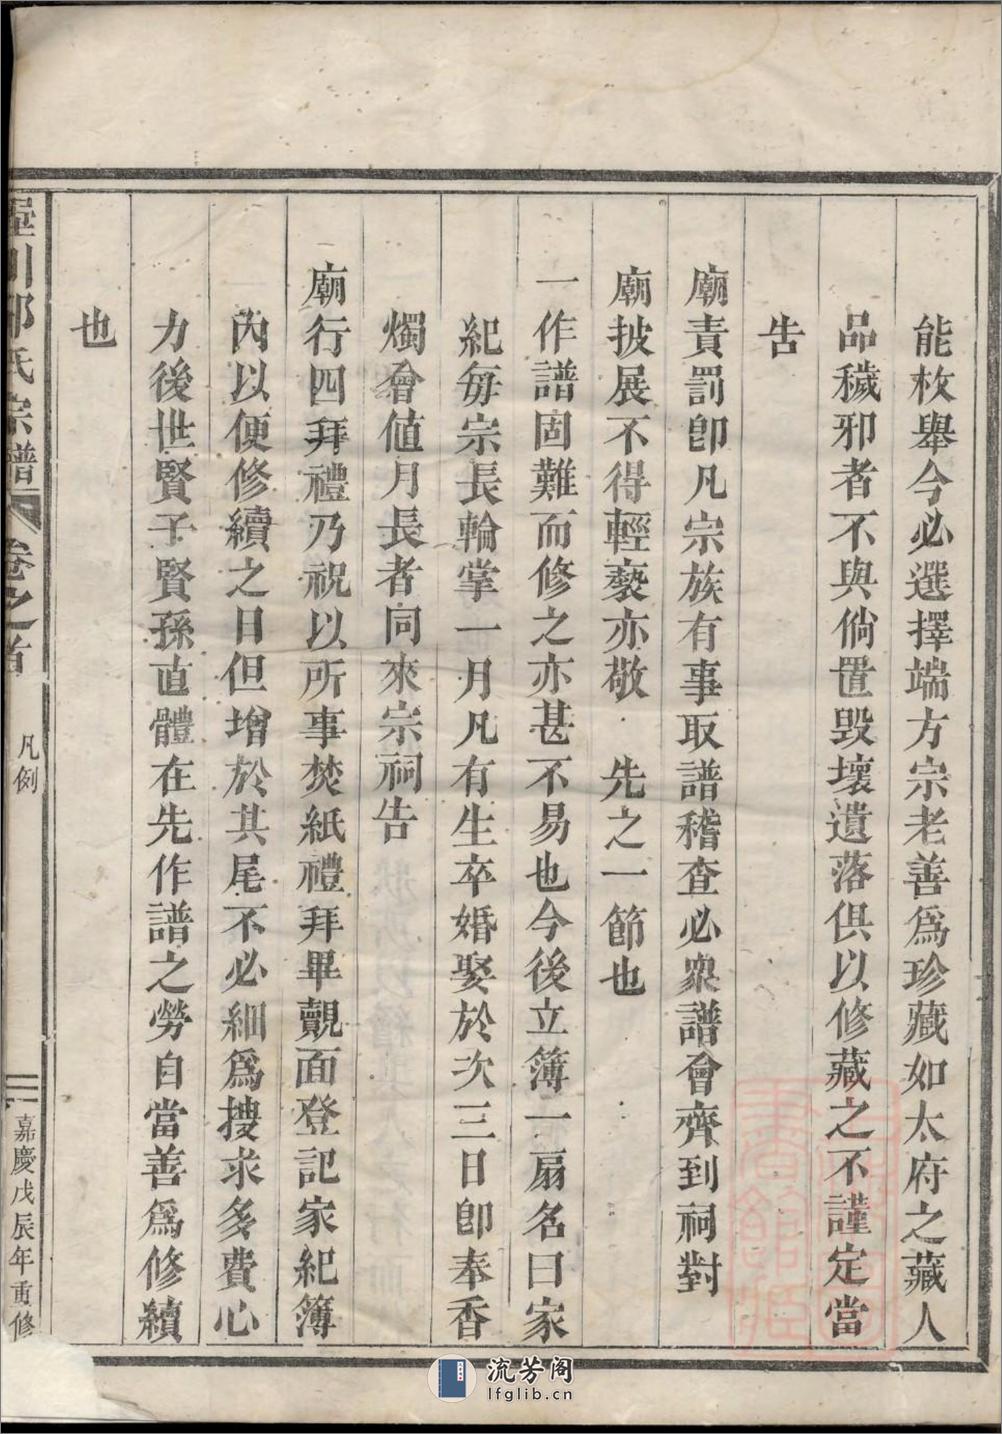 能枚舉今必選擇端方宗老善爲珍藏如太府之藏人
品穢邪者不與倘置毀壞遺落俱以修藏之不謹定當
告
廟責罰卽凡宗族有事取譜稽查必衆譜會齊到祠對
廟披展不得輕褻亦敬先之一節也
一作譜固難而修之亦甚不易也今後立簿一扇名曰家
紀每宗長輪掌一月凡有生卒婚娶於次三日卽奉香
燭會値月長者同來宗祠告
廟行四拜禮乃祝以所事焚紙禮拜畢覿面登記家紀簿
內以便修續之日但增於其尾不必細爲搜求多費心
力後世賢子賢孫直體在先作譜之勞自當善爲修續
也
川邢氏宗譜
卷之首
凡例
二
嘉慶戊辰年重修
流芳阁
lfglib.cn